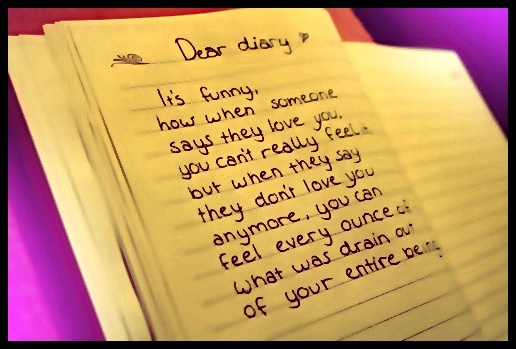 Dear diary
It's funny,
how when someone
says they love you,
you can't really feel..
but when they say
they don't love you
anymore, you can
feel every ounce of
what was drain out
of your entire being